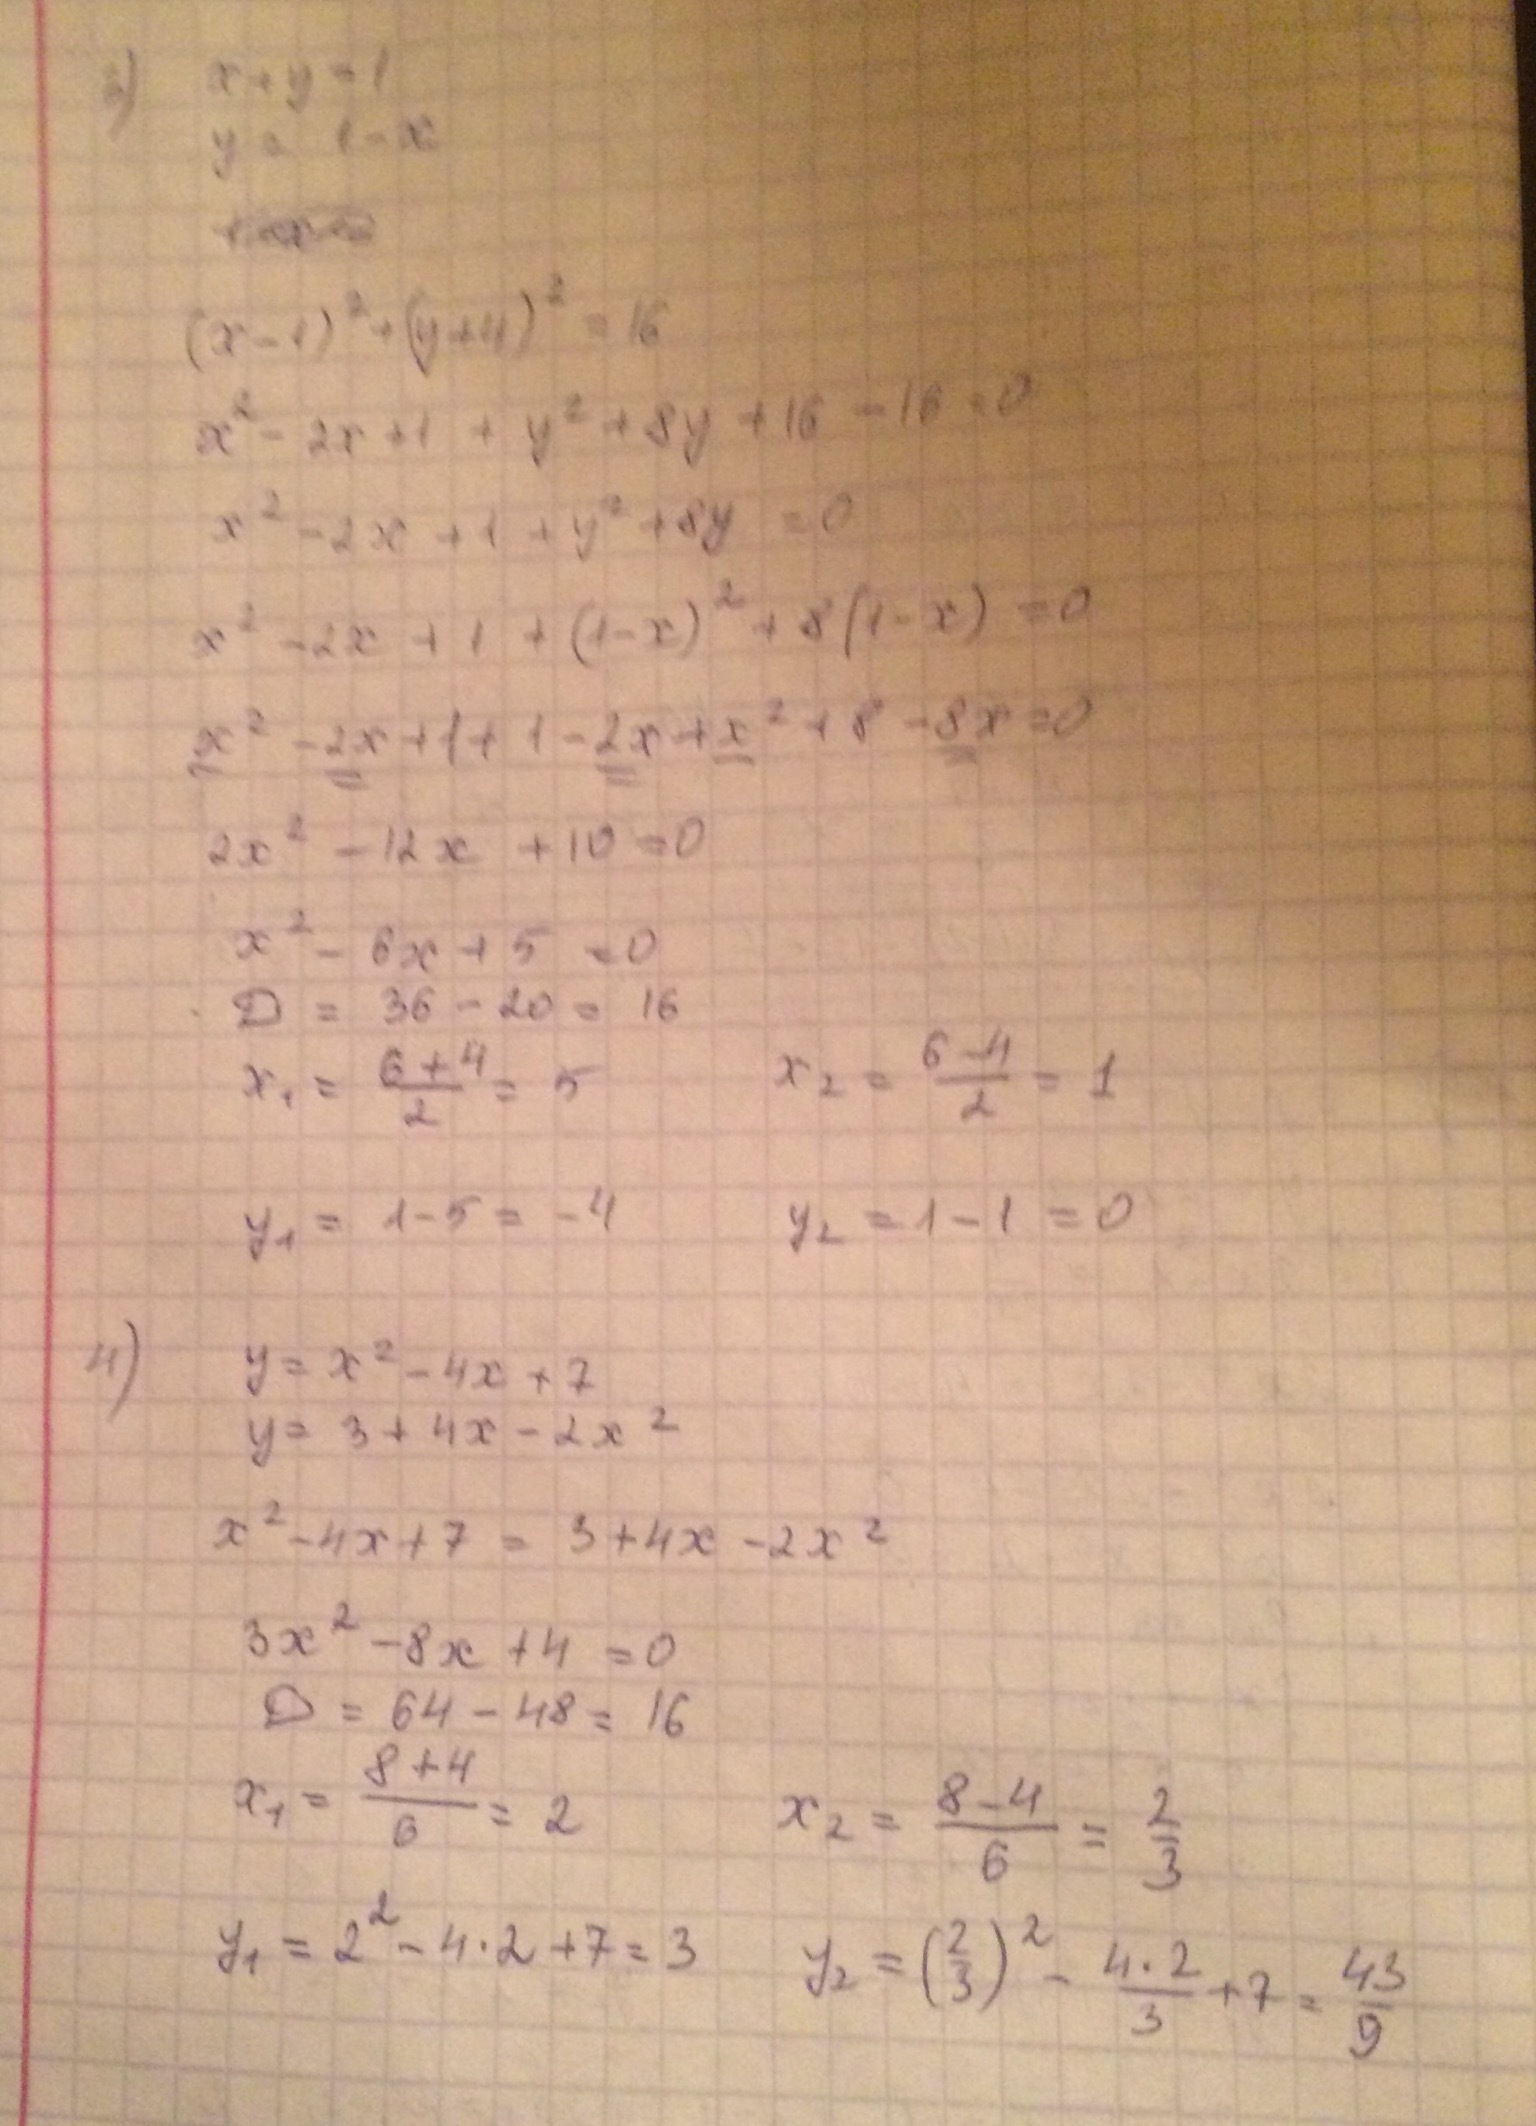 3) x+y=1
y = 1-x
(x-1)²+(y+4)² = 16
x² - 2x +1 + y² + 8y + 16 - 16 = 0
x² - 2x + 1 + y² + 8y = 0
x² - 2x + 1 + (1-x)² + 8(1-x) = 0
x² - 2x + 1 + 1 - 2x + x² + 8 - 8x = 0
2x² - 12x + 10 = 0
x² - 6x + 5 = 0
D = 36 - 20 = 16
x₁ = (6+4)/2 = 5 x₂ = (6-4)/2 = 1
y₁ = 1-5 = -4 y₂ = 1-1 = 0
4) y = x² - 4x + 7
y = 3 + 4x - 2x²
x² - 4x + 7 = 3 + 4x - 2x²
3x² - 8x + 4 = 0
D = 64 - 48 = 16
x₁ = (8+4)/6 = 2 x₂ = (8-4)/6 = 2/3
y₁ = 2² - 4·2 + 7 = 3 y₂ = (2/3)² - (4·2)/3 + 7 = 43/9